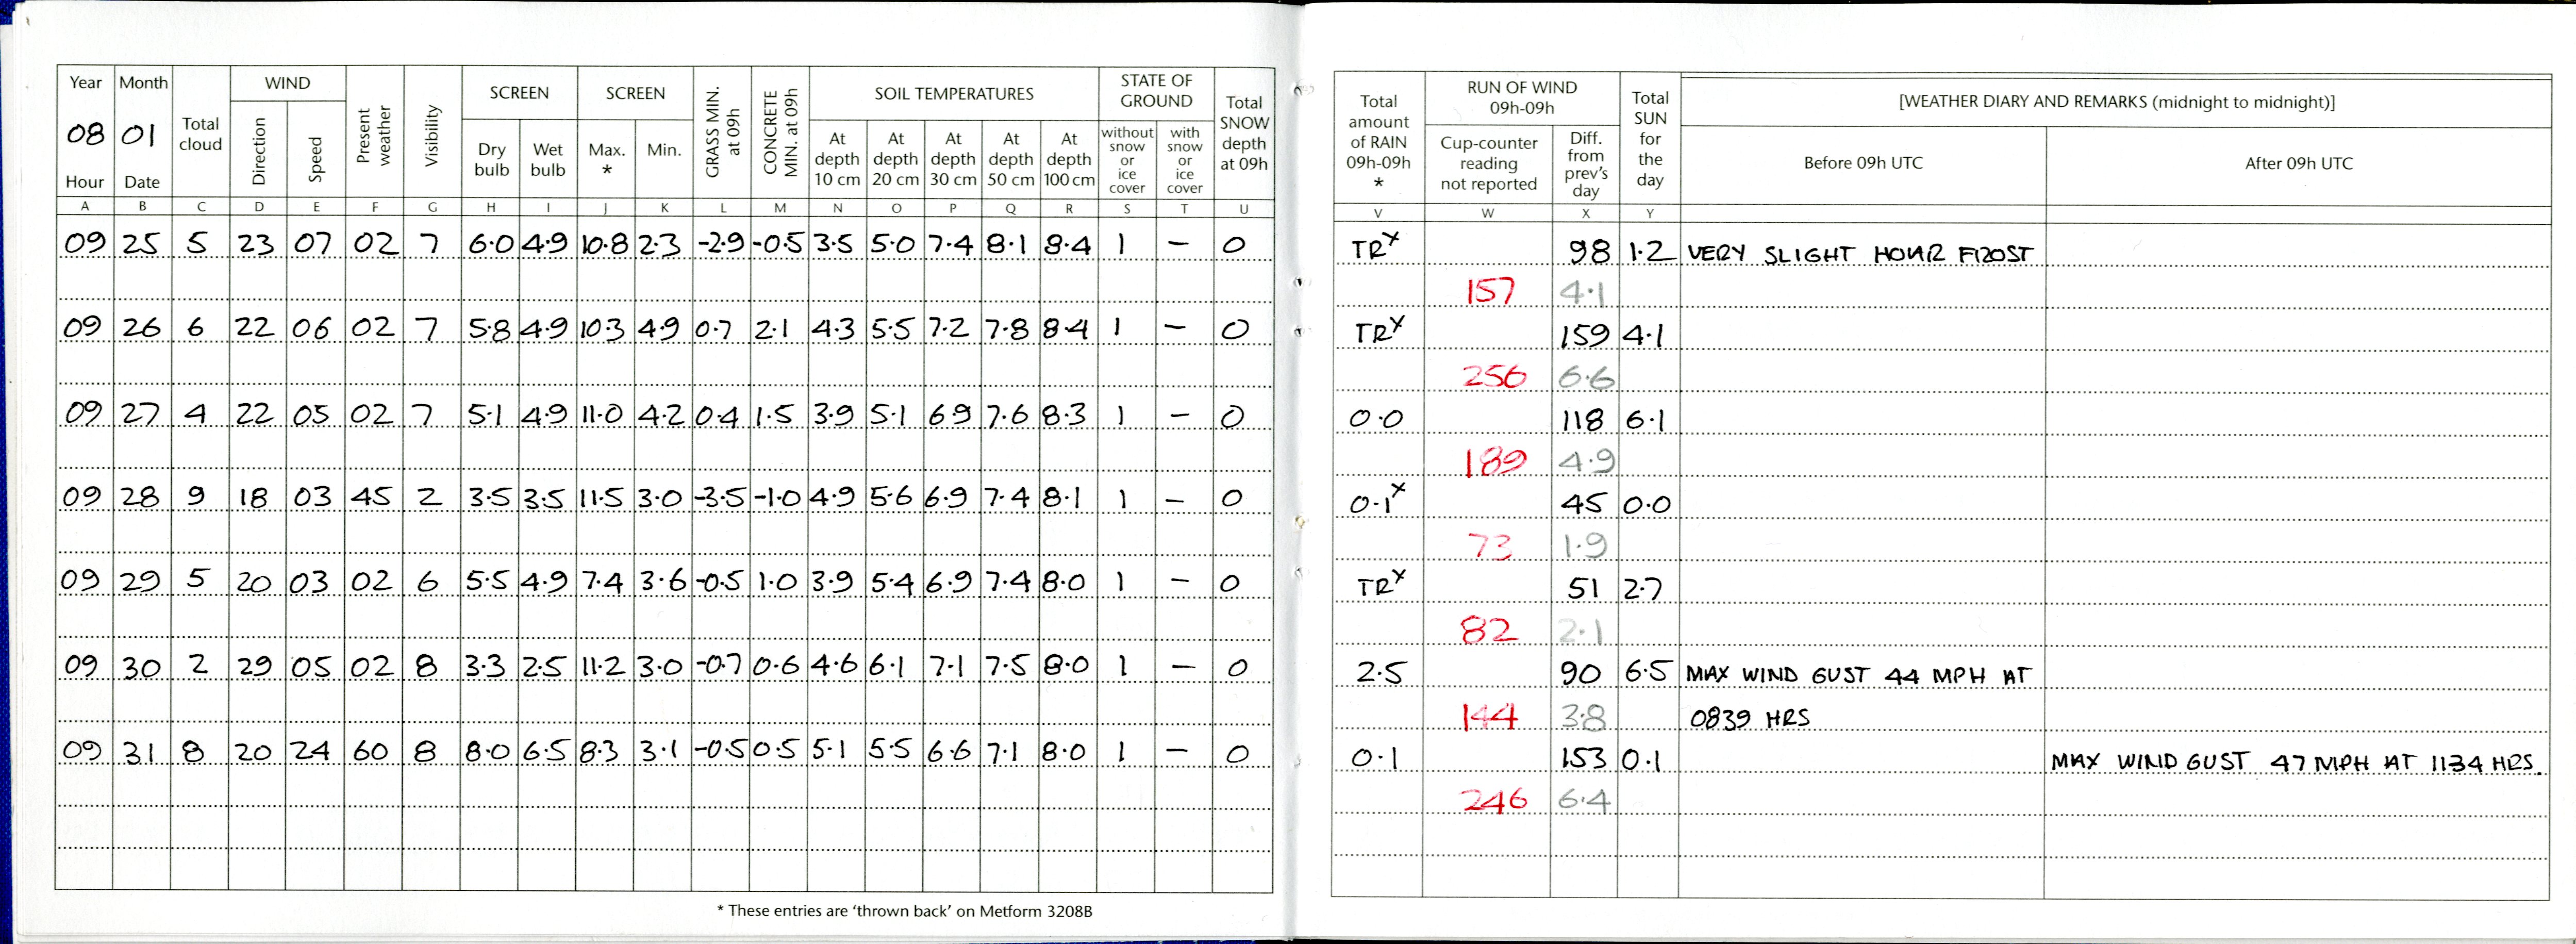 Year Month Total cloud WIND Present weather Visibility SCREEN SCREEN GRASS MIN. at 09h CONCRETE MIN. at 09h SOIL TEMPERATURES STATE OF GROUND Total SNOW depth at 09h
08 01 Direction Speed Dry bulb Wet bulb Max. * Min. At depth 10 cm At depth 20 cm At depth 30 cm At depth 50 cm At depth 100 cm without snow or ice cover with snow or ice cover
Hour Date
A B C D E F G H I J K L M N O P Q R S T U
09 25 5 23 07 02 7 6.0 4.9 10.8 2.3 -2.9 -0.5 3.5 5.0 7.4 8.1 8.4 1 – 0
09 26 6 22 06 02 7 5.8 4.9 10.3 4.9 0.7 2.1 4.3 5.5 7.2 7.8 8.4 1 – 0
09 27 4 22 05 02 7 5.1 4.9 11.0 4.2 0.4 1.5 3.9 5.1 6.9 7.6 8.3 1 – 0
09 28 9 18 03 45 2 3.5 3.5 11.5 3.0 -3.5 -1.0 4.9 5.6 6.9 7.4 8.1 1 – 0
09 29 5 20 03 02 6 5.5 4.9 7.4 3.6 -0.5 1.0 3.9 5.4 6.9 7.4 8.0 1 – 0
09 30 2 29 05 02 8 3.3 2.5 11.2 3.0 -0.7 0.6 4.6 6.1 7.1 7.5 8.0 1 – 0
09 31 8 20 24 60 8 8.0 6.5 8.3 3.1 -0.5 0.5 5.1 5.5 6.6 7.1 8.0 1 – 0
* These entries are ‘thrown back’ on Metform 3208B
Total amount of RAIN 09h-09h * RUN OF WIND 09h-09h Total SUN for the day [WEATHER DIARY AND REMARKS (midnight to midnight)]
Cup-counter reading not reported Diff. from prev's day Before 09h UTC After 09h UTC
V W X Y
TRx 98 1.2 VERY SLIGHT HOAR FROST
157 4.1
TRx 159 4.1
256 6.6
0.0 118 6.1
189 4.9
0.1x 45 0.0
73 1.9
TRx 51 2.7
82 2.1
2.5 90 6.5 MAX WIND GUST 44 MPH AT
144 3.8 0839 HRS
0.1 153 0.1 MAX WIND GUST 47 MPH AT 1134 HRS.
246 6.4